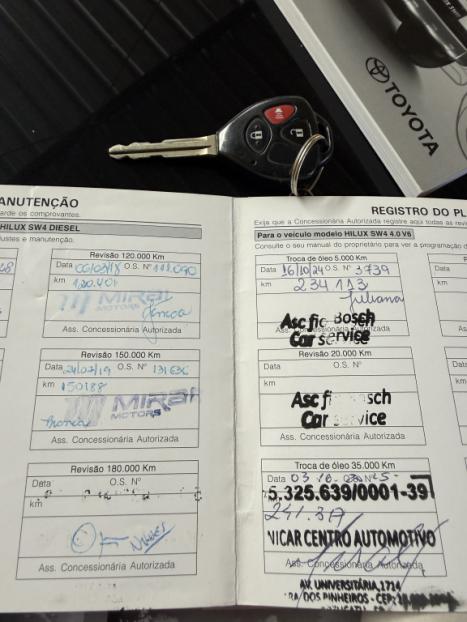 TOYOTA
ANUTENÇÃO
arde os comprovantes.
HILUX SW4 DIESEL
justes e manutenção.
Revisão 120.000 Km
Data O.S. Nº
km 120.401
MIRAI
MOTORS
Ass. Concessionária Autorizada
Revisão 150.000 Km
Data 21/02/19 O.S. Nº 131636
km 150188
MIRAI
MOTORS
Ass. Concessionária Autorizada
Revisão 180.000 Km
Data O.S. Nº
km
Ass. Concessionária Autorizada
REGISTRO DO PL
Exija que a Concessionária Autorizada registre aqui todas as revis
Para o veículo modelo HILUX SW4 4.0 V6
Consulte o seu manual do proprietário para ver a programação d
Troca de óleo 5.000 Km
Data 16/10/24 O.S. Nº 3739
km 234 113
Juliana
Asc fic Bosch
Car service
Ass. Concessionária Autorizada
Revisão 20.000 Km
Data O.S. Nº
km
Asc fi sch
Car vice
Ass. Concessionária Autorizada
Troca de óleo 35.000 Km
Data O.S. Nº
5.325.639/0001-39
km
VICAR CENTRO AUTOMOTIVO
Ass. Concessionária Autorizada
AV. UNIVERSITÁRIA, 1714
RA DOS PINHEIROS - CEP: